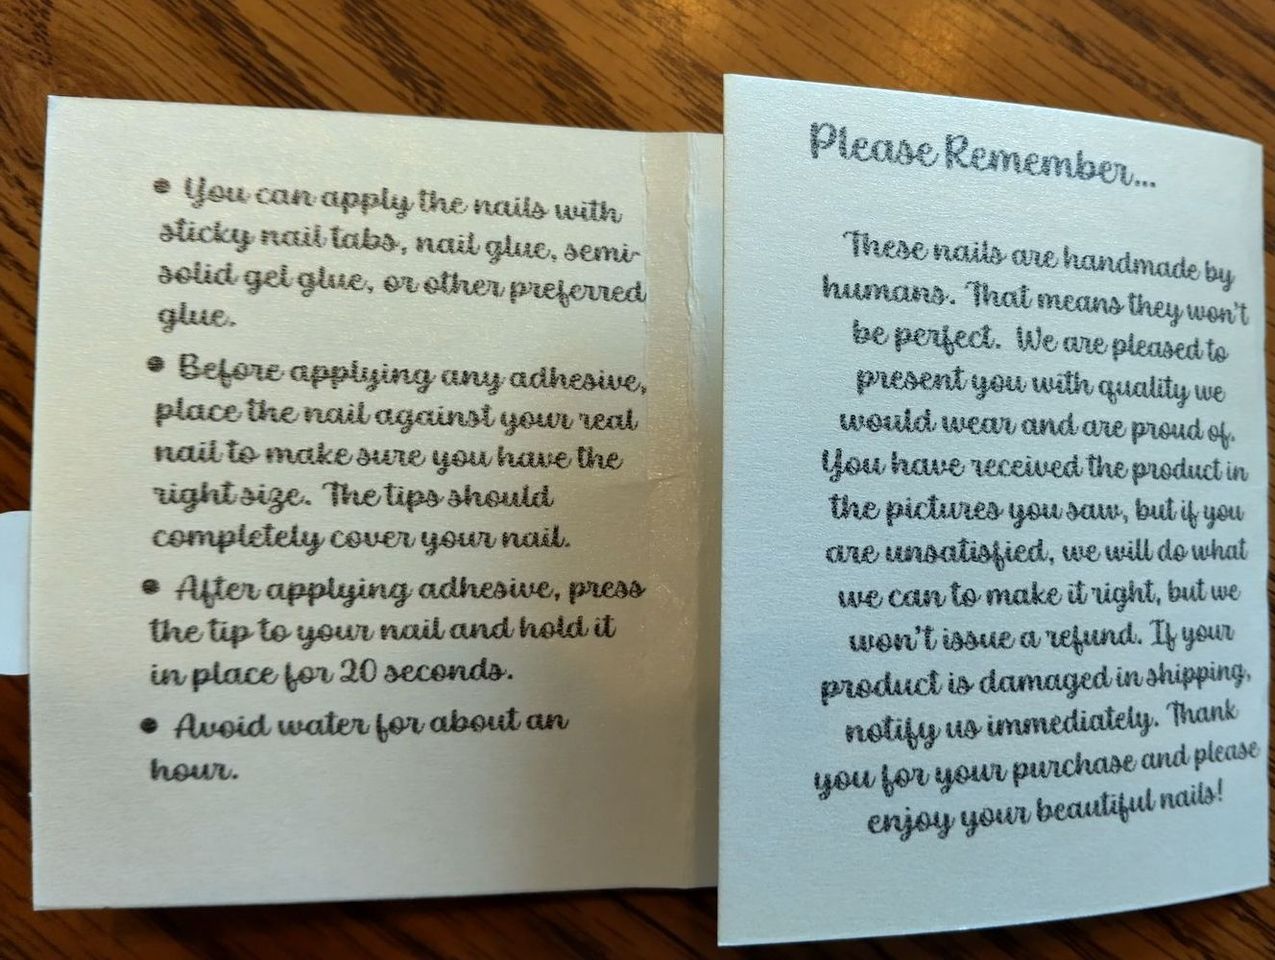 • You can apply the nails with
sticky nail tabs, nail glue, semi-
solid gel glue, or other preferred
glue.
• Before applying any adhesive,
place the nail against your real
nail to make sure you have the
right size. The tips should
completely cover your nail.
• After applying adhesive, press
the tip to your nail and hold it
in place for 20 seconds.
• Avoid water for about an
hour.
Please Remember...
These nails are handmade by
humans. That means they won't
be perfect. We are pleased to
present you with quality we
would wear and are proud of.
You have received the product in
the pictures you saw, but if you
are unsatisfied, we will do what
we can to make it right, but we
won't issue a refund. If your
product is damaged in shipping,
notify us immediately. Thank
you for your purchase and please
enjoy your beautiful nails!